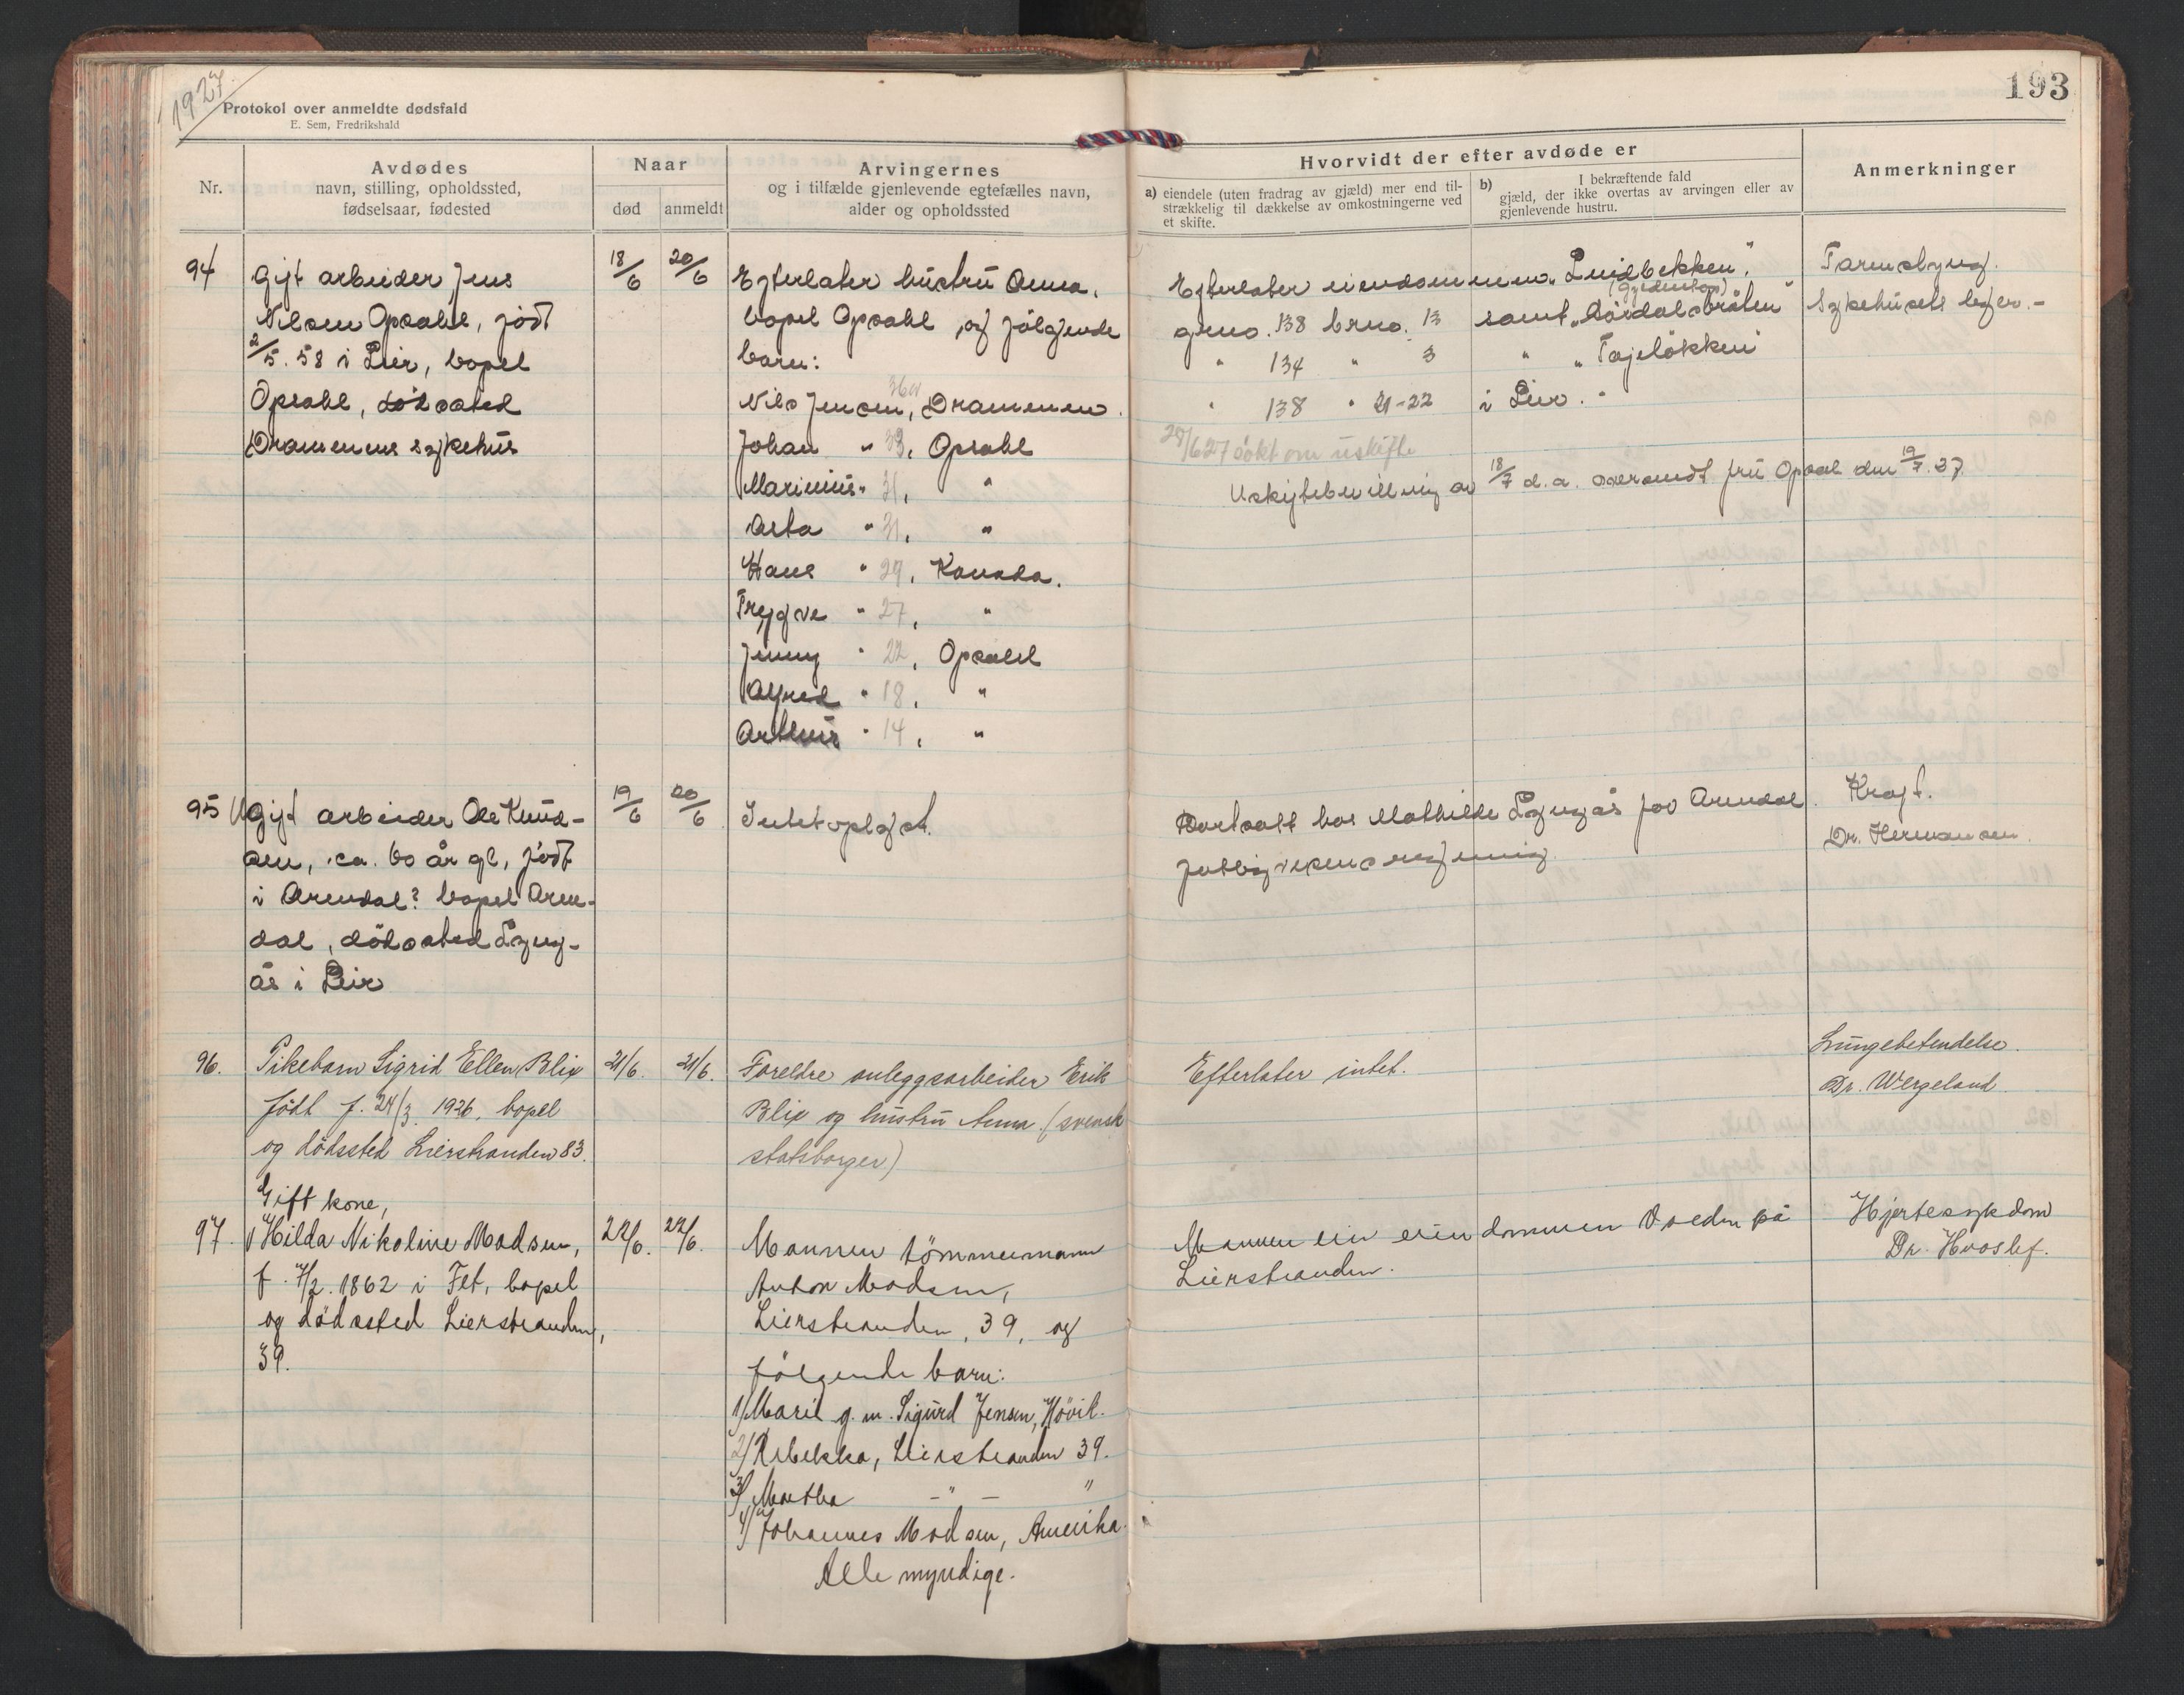 1927
Protokol over anmeldte dødsfald
E. Sem, Fredrikshald
Nr.
Avdødes
navn, stilling, opholdssted,
fødselsaar, fødested
Naar
død
anmeldt
Arvingernes
og i tilfælde gjenlevende egtefælles navn,
alder og opholdssted
94
Gift arbeider Jens
Nilsen Opsahl, født
2/5. 58 i Lier, bopel
Opsahl, dödssted
Drammens sykehus
18/6
20/6
Efterlater hustru Anna,
bopel Opsahl, og følgende
barn:
Nils Jensen, 36 år Drammen.
Johan " 33, Opsahl
Marinius " 31, "
Asta " 31, "
Hans " 29, Kanada.
Trygve " 27, "
Jenny " 22, Opsahl
Alfred " 18, "
Arthur " 14, "
95
Ugift arbeider Ole Knud-
sen, ca. 60 år gl, født
i Arendal? bopel Aren-
dal, dödssted Lyng-
ås i Lier
19/6
20/6
Intet oplyst.
96.
Pikebarn Sigrid Ellen Blix
født f. 24/3 1926, bopel
og dödssted Lierstranden 83.
21/6.
21/6.
Foreldre anleggsarbeider Erik
Blix og hustru Anna. (svensk
statsborger)
97.
Gift kone,
Hilda Nikoline Madsen,
f. 4/2. 1862 i Fet, bopel
og dödssted Lierstranden,
39.
22/6.
22/6.
Mannen tömmermann
Anton Madsen,
Lierstranden, 39, og
følgende barn:
1/ Marie g. m. Sigurd Jensen, Hövik.
2/ Rebekka, Lierstranden 39.
3/ Martha - " - "
4/ Johannes Madsen, Amerika.
Alle myndige.
193
Hvorvidt der efter avdøde er
a) eiendele (uten fradrag av gjæld) mer end til-
strækkelig til dækkelse av omkostningerne ved
et skifte.
b) I bekræftende fald
gjæld, der ikke overtas av arvingen eller av
gjenlevende hustru.
Anmerkninger
Efterlater eiendommen "Lindbekken",
grno. 138 brno. 13 samt
" 134 " 3 " "
" 138 " 21-22 i Lier. "
28/6 27 søkt om uskifte
Uskiftebevilling av 18/7 d. a. oversendt fru Opsal den 19/7. 27.
Tarmslyng.
Sykehusets leger. -
Bortsatt hos Mathilde Lyngås for Arendal
fattigvesens regning.
Kreft.
Dr. Hermansen.
Efterlater intet.
Lungebetendelse.
Dr. Wergeland.
Mannen eier eiendommen på
Lierstranden.
Hjertesykdom
Dr. Hvoslef.